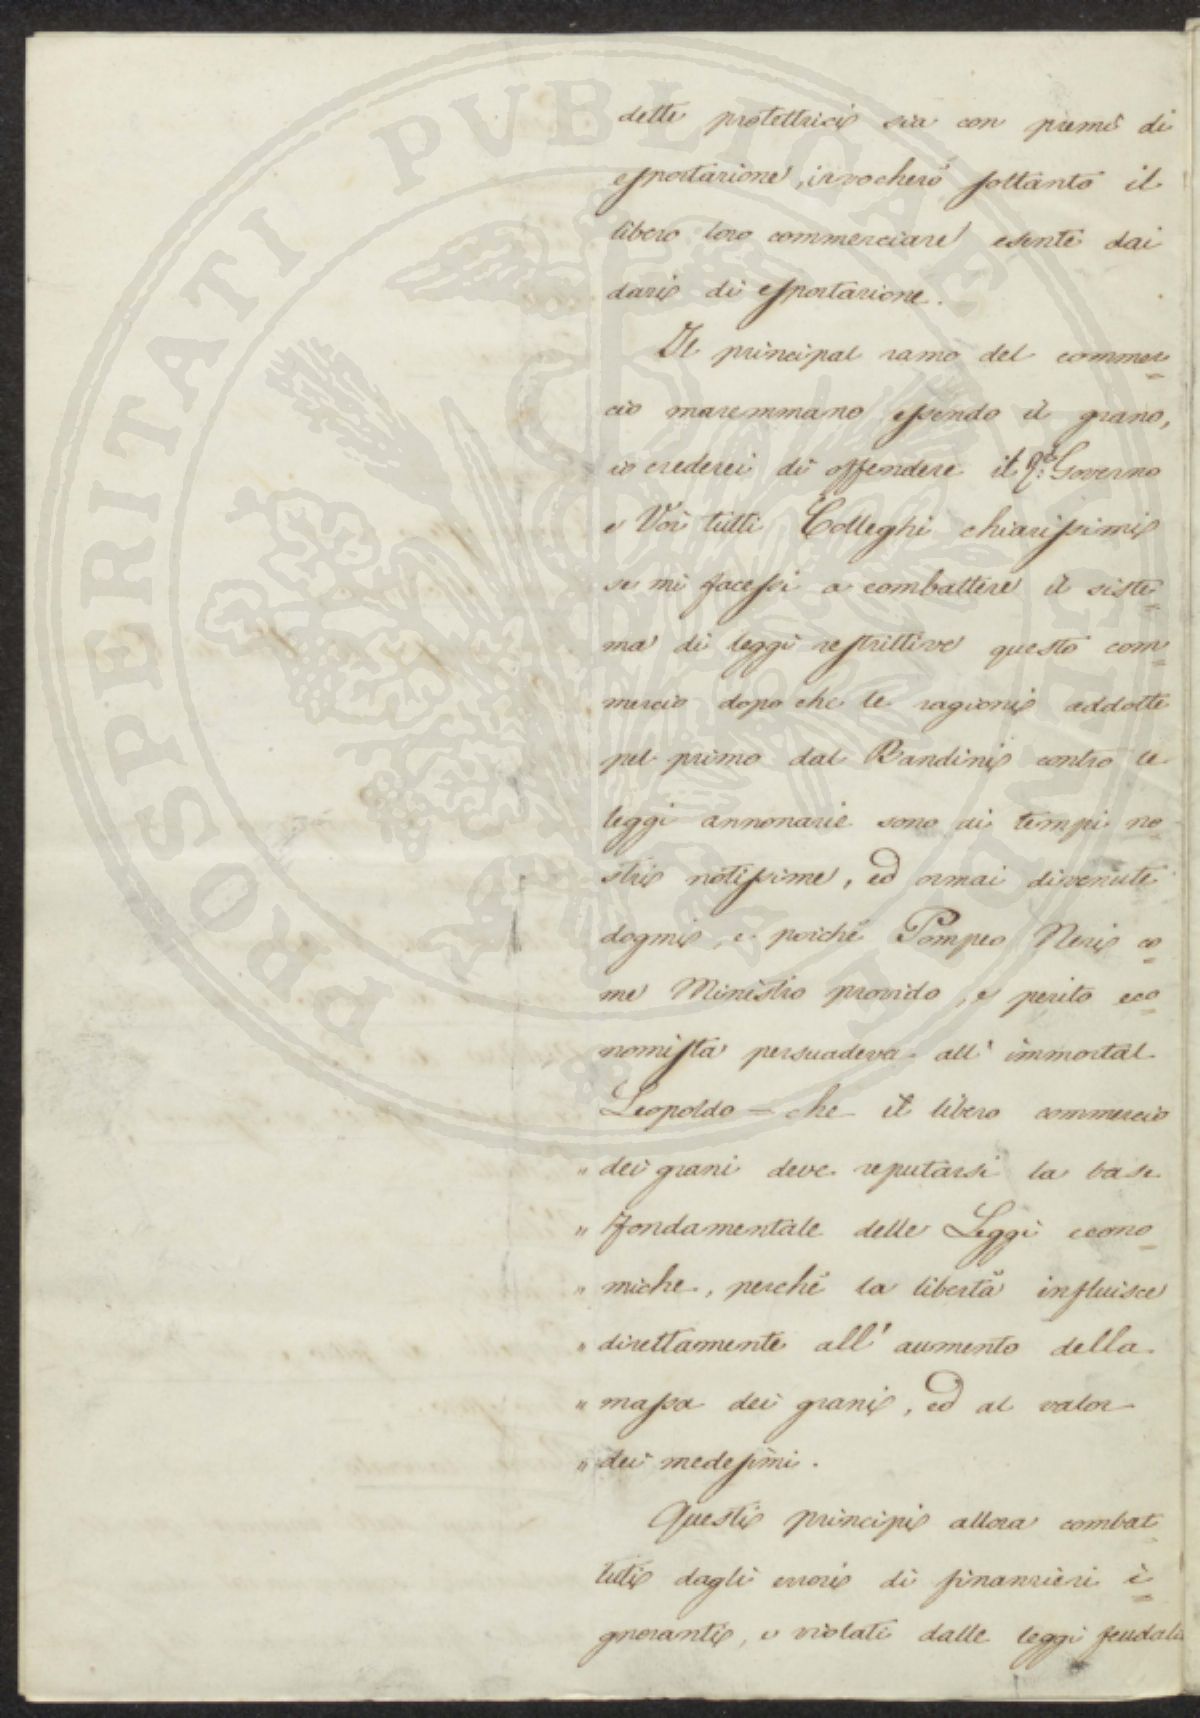 PROSPERITATI PUBLICAE AUGENDAE
dette protettrici sia con premi di
esportazione, invocherò soltanto il
libero loro commerciare esente dai
dazi di esportazione.
Il principal ramo del commer=
cio maremmano essendo il grano,
io crederei di offendere il R. Governo
e Voi tutti Colleghi chiarissimi
se mi facessi a combattere il siste=
ma di leggi restrittive questo com=
mercio dopo che le ragioni addotte
pel primo dal Bandini contro le
leggi annonarie sono ai tempi no=
stri notissime, ed ormai divenute
dogmi, e poichè Pompeo Neri co=
me Ministro provido, e perito eco=
nomista persuadeva all' immortal
Leopoldo — che il libero commercio
" dei grani deve reputarsi la base
" fondamentale delle Leggi econo=
" miche, perchè la libertà influisce
" direttamente all' aumento della
" massa dei grani, ed al valor
" dei medesimi.
Questi principi allora combat=
tuti dagli errori di finanzieri i=
gnoranti, e violati dalle leggi feudali